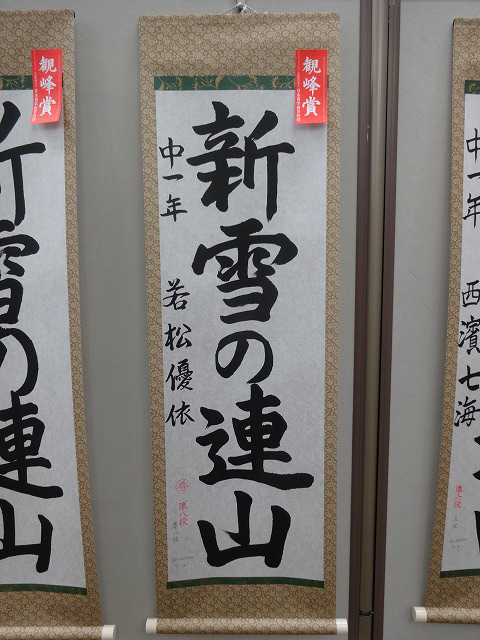 観峰賞
新雪の連山
中一年 若松優依
準八段
観峰賞
新雪の連山
中一年 西濱七海
準六段